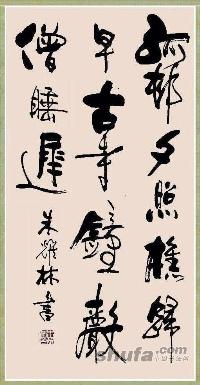 孤邨夕照樵歸
早古寺鐘敲
僧睡遲
朱耀林書
shufa.com